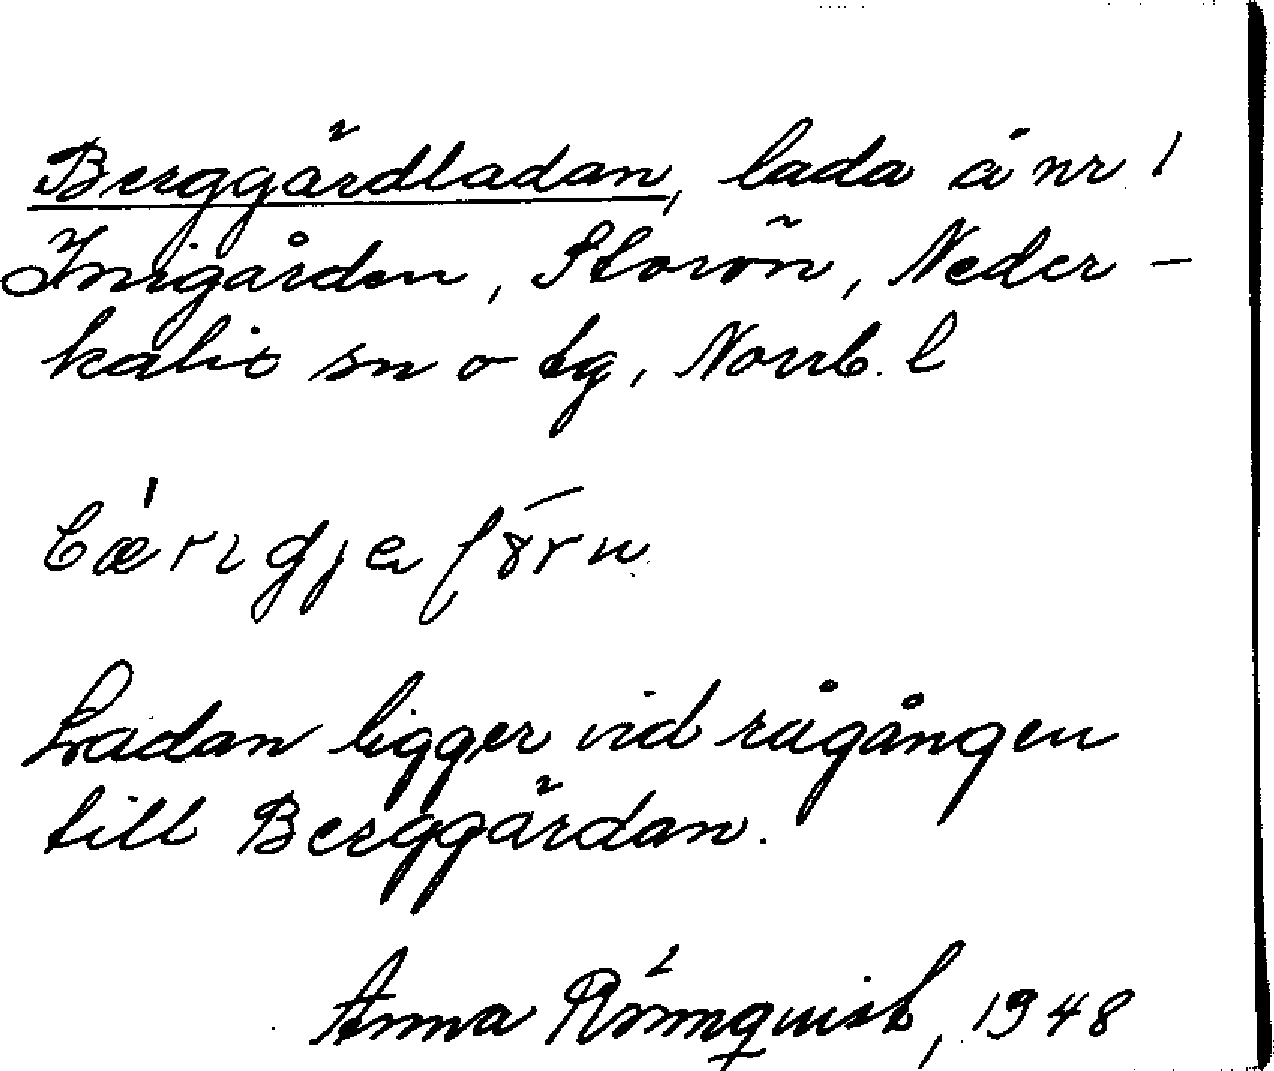 Berggärdladan, lada å nr 1
Inigården, Storön, Neder-
kalix sn o tg, Norrb. l
Ladan ligger vid rågången
till Berggärdan.
Anna Rönnquist, 1948